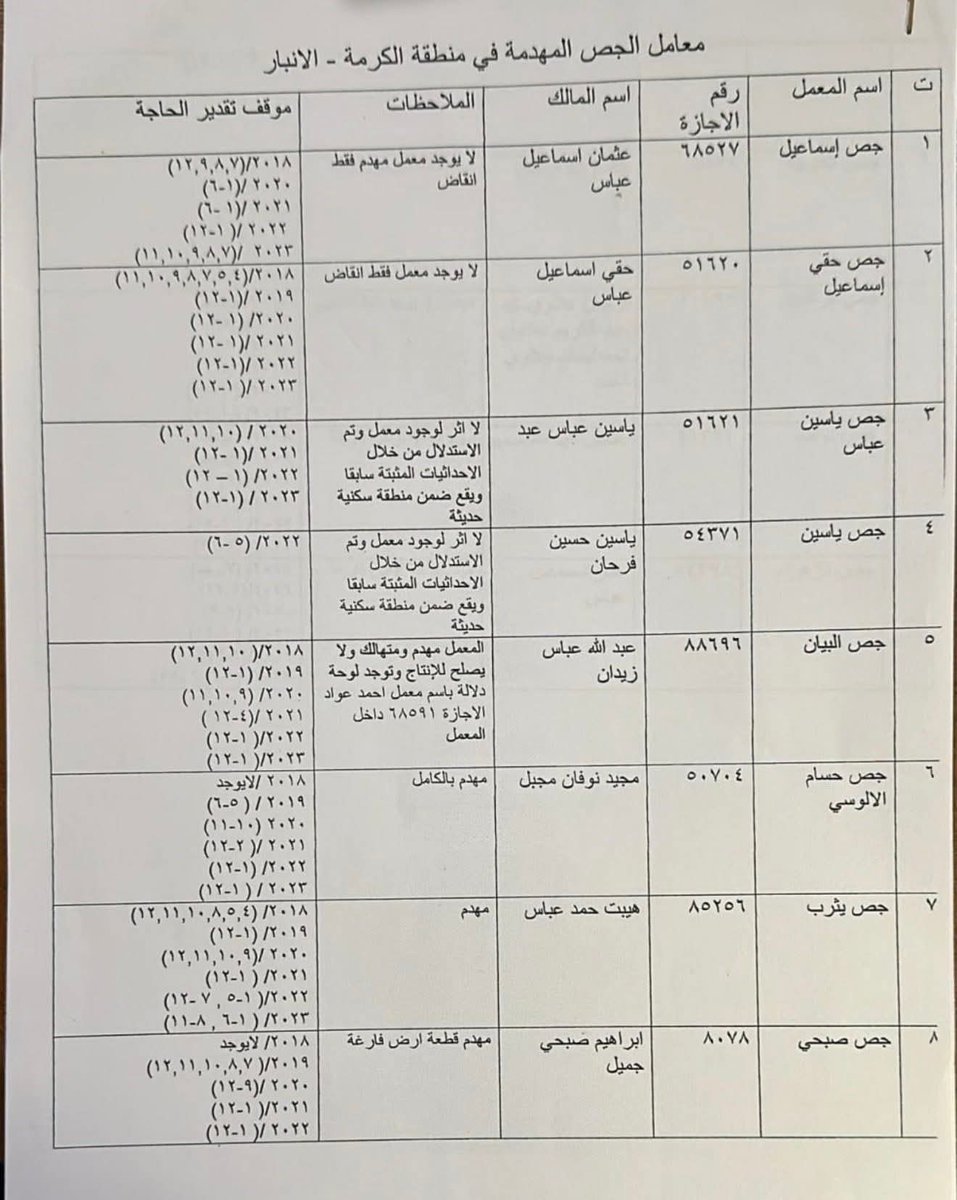 معامل الجص المهدمة في منطقة الكرمة - الانبار
ت | اسم المعمل | رقم الاجازة | اسم المالك | الملاحظات | موقف تقدير الحاجة
١ | جص إسماعيل | ٦٨٥٢٧ | عثمان اسماعيل عباس | لا يوجد معمل مهدم فقط انقاض | ٢٠١٨/(١٢,٩,٨,٧)
٢٠٢٠ /(١-٦)
٢٠٢١ /(١-٦)
٢٠٢٢ /(١-١٢)
٢٠٢٣ /(١١,١٠,٩,٨,٧)
٢ | جص حقي إسماعيل | ٥١٦٢٠ | حقي اسماعيل عباس | لا يوجد معمل فقط انقاض | ٢٠١٨/(١١,١٠,٩,٨,٧,٥,٤)
٢٠١٩ /(١-١٢)
٢٠٢٠ /(١-١٢)
٢٠٢١ /(١-١٢)
٢٠٢٢ /(١-١٢)
٢٠٢٣ /(١-١٢)
٣ | جص ياسين عباس | ٥١٦٢١ | ياسين عباس عبد | لا اثر لوجود معمل وتم الاستدلال من خلال الاحداثيات المثبتة سابقا ويقع ضمن منطقة سكنية حديثة | ٢٠٢٠ / (١٢,١١,١٠)
٢٠٢١ /(١-١٢)
٢٠٢٢ /(١ – ١٢)
٢٠٢٣ / (١-١٢)
٤ | جص ياسين | ٥٤٣٧١ | ياسين حسين فرحان | لا اثر لوجود معمل وتم الاستدلال من خلال الاحداثيات المثبتة سابقا ويقع ضمن منطقة سكنية حديثة | ٢٠٢٢/ (٥-٦)
٥ | جص البيان | ٨٨٦٩٦ | عبد الله عباس زيدان | المعمل مهدم ومتهالك ولا يصلح للإنتاج وتوجد لوحة دلالة باسم معمل احمد عواد الاجازة ٦٨٥٩١ داخل المعمل | ٢٠١٨/(١٢,١١,١٠)
٢٠١٩/ (١-١٢)
٢٠٢٠/ (١١,١٠,٩)
٢٠٢١ /(٤-١٢)
٢٠٢٢/(١-١٢)
٢٠٢٣/(١-١٢)
٦ | جص حسام الالوسي | ٥٠٧٠٤ | مجيد نوفان مجبل | مهدم بالكامل | ٢٠١٨ /لايوجد
٢٠١٩ / (٥-٦)
٢٠٢٠ (١٠-١١)
٢٠٢١ /(٢-١٢)
٢٠٢٢/ (١-١٢)
٢٠٢٣ / (١-١٢)
٧ | جص يثرب | ٨٥٢٥٦ | هيبت حمد عباس | مهدم | ٢٠١٨/ (١٢,١١,١٠,٨,٥,٤)
٢٠١٩/ (١-١٢)
٢٠٢٠/(١٢,١١,١٠,٩)
٢٠٢١/ (١-١٢)
٢٠٢٢/(١-٥ , ٧-١٢)
٢٠٢٣/ (١-٦ , ٨-١١)
٨ | جص صبحي | ٨٠٧٨ | ابراهيم صبحي جميل | مهدم قطعة ارض فارغة | ٢٠١٨/ لايوجد
٢٠١٩/(١٢,١١,١٠,٨,٧)
٢٠٢٠ /(٩-١٢)
٢٠٢١/(١-١٢)
٢٠٢٢ /(١-١٢)